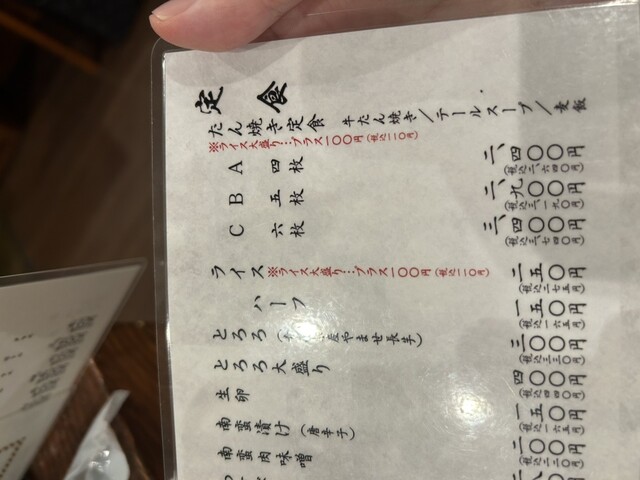 定食
たん焼き定食 牛たん焼き/テールスープ/麦飯
※ライス大盛り…プラス一〇〇円(税込一一〇円)
A 四枚 二、四〇〇円
(税込二、六四〇円)
B 五枚 二、九〇〇円
(税込三、一九〇円)
C 六枚 三、四〇〇円
(税込三、七四〇円)
ライス ※ライス大盛り…プラス一〇〇円(税込一一〇円) 二五〇円
(税込二七五円)
ハーフ 一五〇円
(税込一六五円)
とろろ やませ長芋) 三〇〇円
(税込三三〇円)
とろろ大盛り 四〇〇円
(税込四四〇円)
生卵 一五〇円
(税込一六五円)
南蛮漬け(唐辛子) 二〇〇円
(税込二二〇円)
南蛮肉味噌